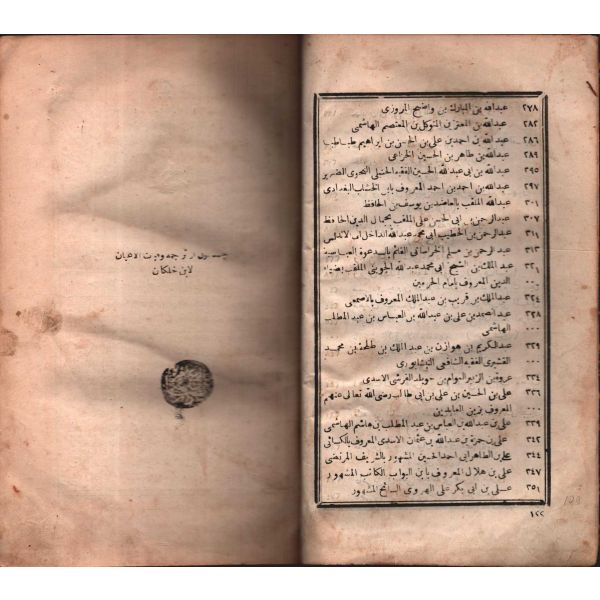 ٢٧٨ عبدالله بن المبارك بن واضح المروزى
٢٨٢ عبدالله بن المعتز بن المتوكل بن المعتصم الهاشمى
٢٨٦ عبدالله بن احمد بن على بن الحسن بن ابراهيم طباطبا
٢٨٩ عبدالله بن طاهر بن الحسين الخزاعى
٢٩٥ عبدالله بن ابى عبدالله الحسين الفقيه الحنبلى النحوى الضرير
٢٩٧ عبدالله بن احمد بن احمد المعروف بابن الخشاب البغدادى
٣٠١ عبدالله الملقب بالعاضد بن يوسف بن الحافظ
٣٠٧ عبدالرحمن بن ابى الحسن على الملقب بجمال الدين الحافظ
٣١١ عبدالرحمن بن الخطيب ابى محمد عبدالله الداخل الاندلس
٣١٣ عبدالرحمن بن مسلم الخراسانى القائم بالدعوة العباسية
٣٢١ عبدالملك بن الشيخ ابى محمد عبدالله الجوينى الملقب بضياء
٠٠٠ الدين المعروف بامام الحرمين
٣٢٤ عبدالملك بن قريب بن عبدالملك المعروف بالاصمعى
٣٢٨ عبدالصمد بن على بن عبدالله بن العباس بن عبد المطلب
٠٠٠ الهاشمى
٣٢٩ عبدالكريم بن هوازن بن عبد الملك بن طلحة بن محمد
٠٠٠ القشيرى الفقيه الشافعى النيشابورى
٣٣٤ عروة بن الزبير العوام بن خويلد القرشى الاسدى
٣٣٦ على بن الحسين بن على بن ابى طالب رضى الله تعالى عنهم
٠٠٠ المعروف بزين العابدين
٣٣٩ على بن عبدالله بن العباس بن عبد المطلب بن هاشم الهاشمى
٣٤٢ على بن حمزة بن عبدالله بن عثمان الاسدى المعروف بالكسائى
٣٤٤ على بن الطاهر ابى احمد الحسين المشهور بالشريف المرتضى
٣٤٧ على بن هلال المعروف بابن البواب الكاتب المشهور
٣٥١ على بن ابى بكر على الهروى السائح المشهور
١٢٢
ترجمه وفيات الاعيان
لابن خلكان